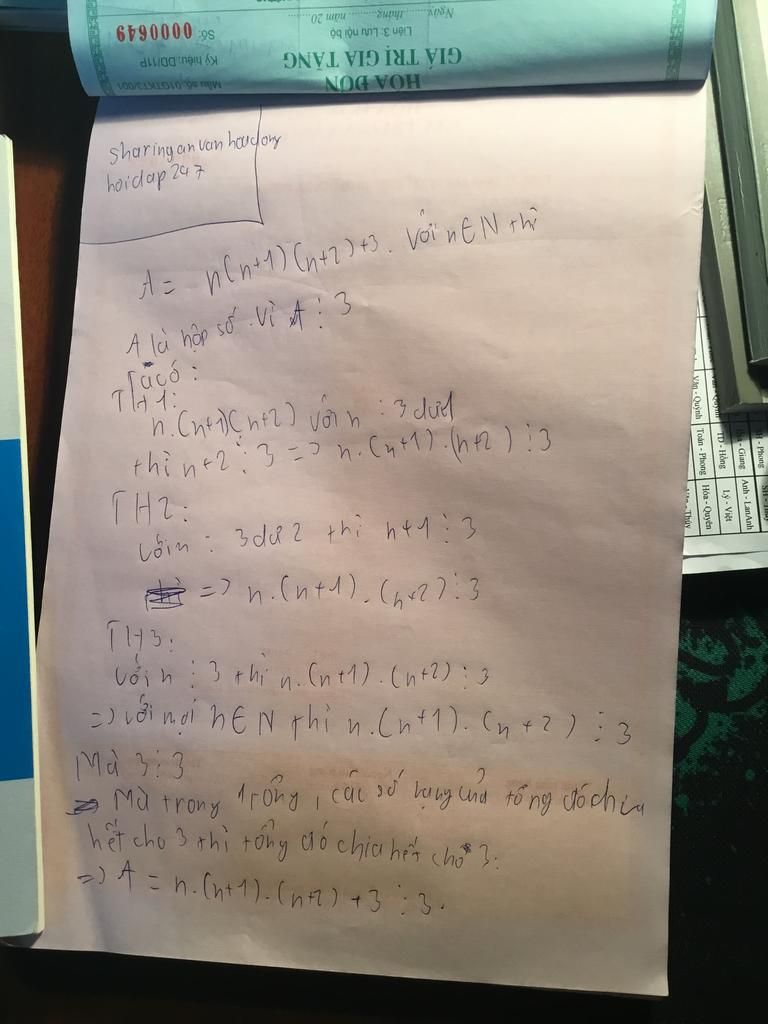 HOÁ ĐƠN
GIÁ TRỊ GIA TĂNG
Liên 3: Lưu nội bộ
Ngày........ tháng........ năm 20
Mẫu số: 01GTKT3/001
Ký hiệu: DD/11P
Số: 0000649
sharinganvanhoadong
hoidap247
A = n(n+1)(n+2)+3. Với n∈N thì
A là hợp số. Vì A ⋮ 3
Ta có:
TH1:
n.(n+1)(n+2) với n : 3 dư 1
thì n+2 ⋮ 3 => n.(n+1).(n+2) ⋮ 3
TH2:
với n : 3 dư 2 thì n+1 ⋮ 3
=> n.(n+1).(n+2) ⋮ 3
TH3:
với n ⋮ 3 thì n.(n+1).(n+2) ⋮ 3
=> với mọi n∈N thì n.(n+1).(n+2) ⋮ 3
Mà 3 ⋮ 3
Mà trong 1 tổng, các số hạng của tổng đó chia
hết cho 3 thì tổng đó chia hết cho 3:
=> A = n.(n+1).(n+2) + 3 ⋮ 3.
Vân - Quỳnh
Toán - Phong
Hóa - Quyên
TD - Hồng
Lý - Việt
Anh - LanAnh